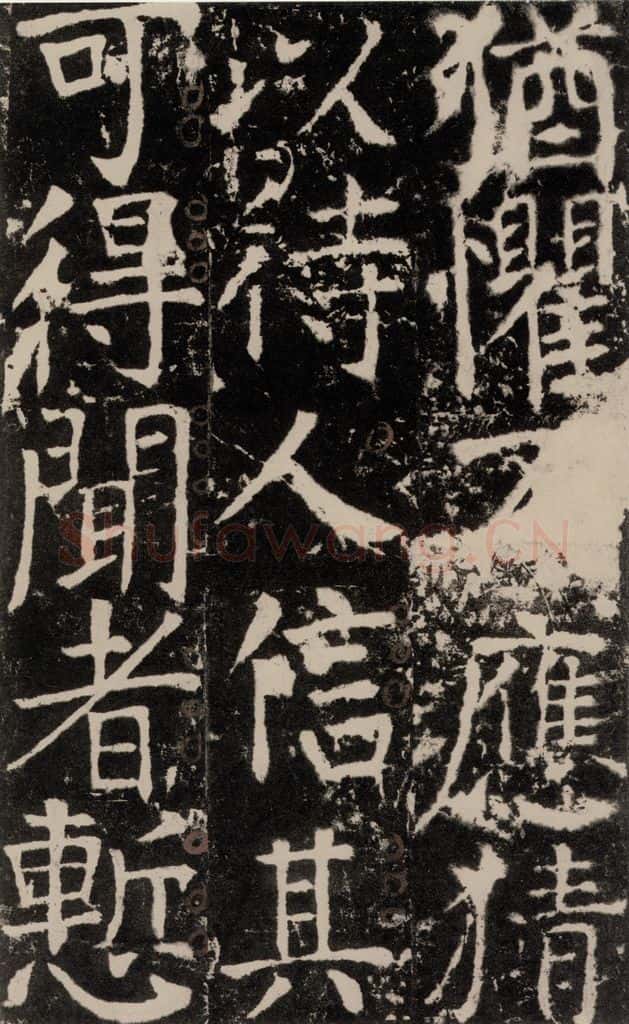 猶懼不應猜
以待人信其
可得聞者慙
Shufawang.CN